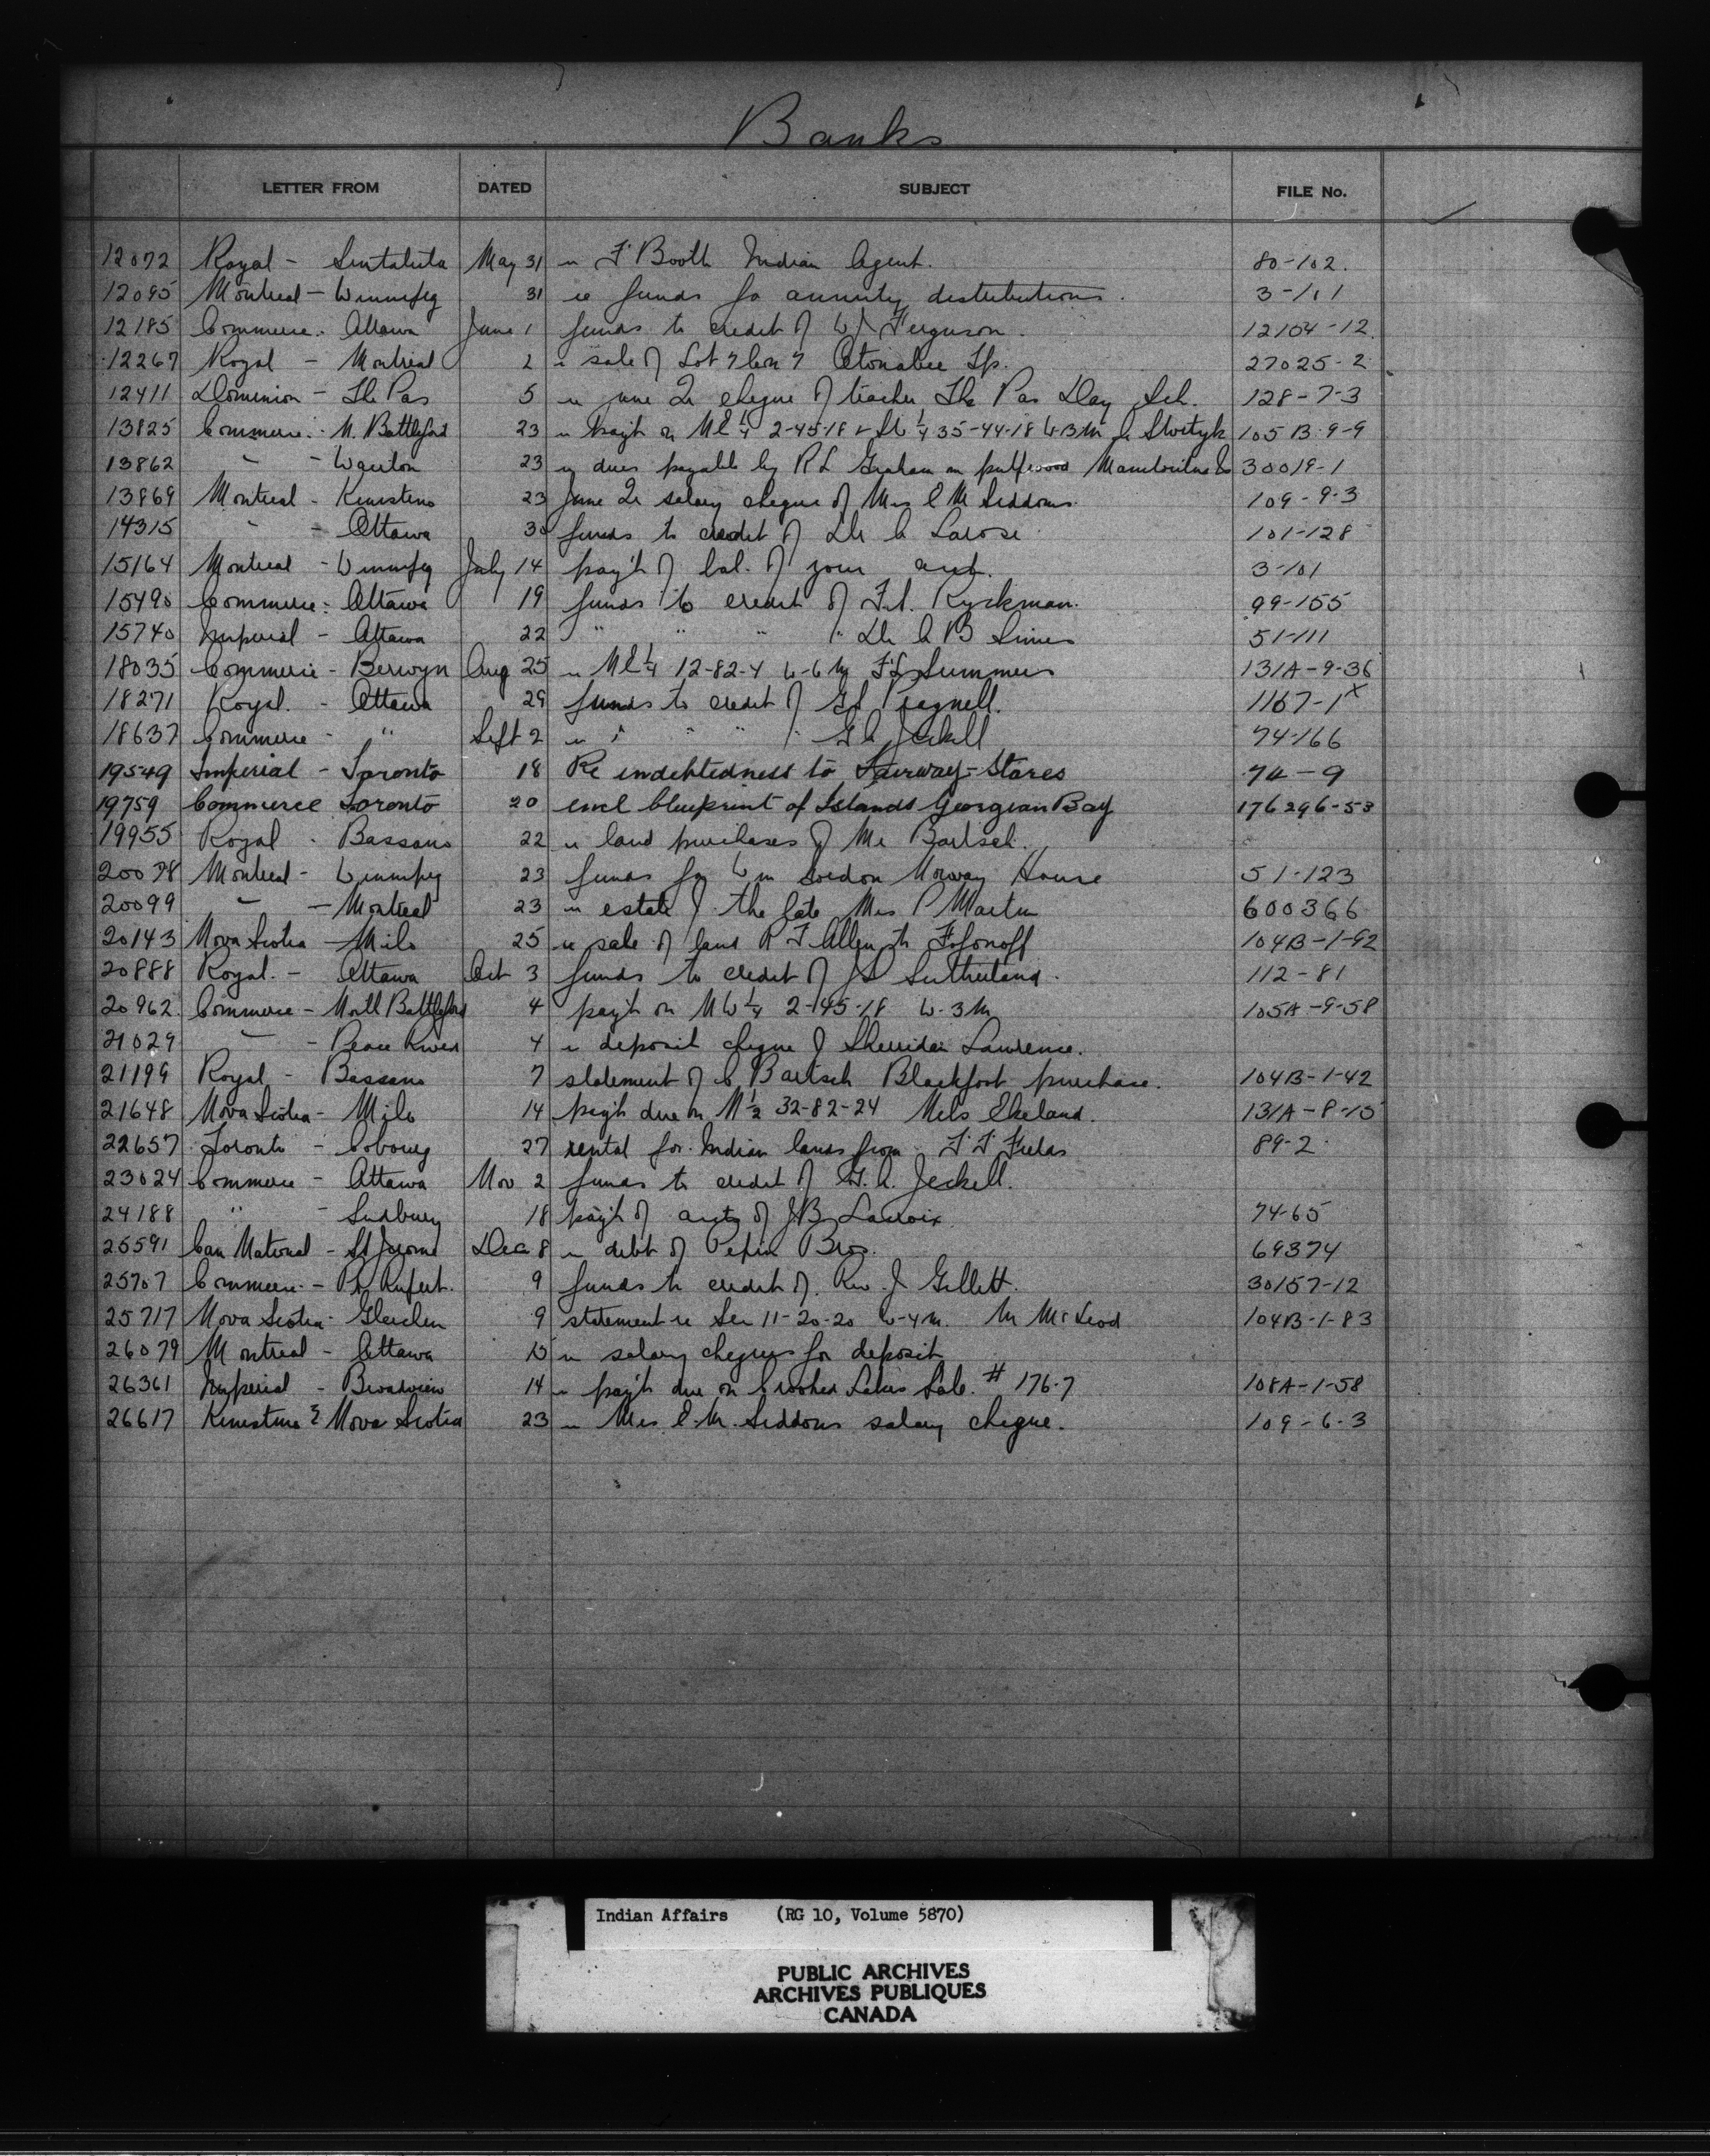 Banks
LETTER FROM DATED SUBJECT FILE No.
12072 Royal - Sintaluta May 31 re F Booth Indian Agent. 80-102.
12095 Montreal - Winnipeg 31 re funds for annuity distributions. 3-101
12185 Commerce - Ottawa June 1 funds to credit of W J Ferguson. 12104-12
12267 Royal - Montreal 2 re sale of Lot 7 Con 7 Otonabee Tp. 27025-2
12411 Dominion - The Pas 5 re June Qr cheque of teacher The Pas Day Sch. 128-7-3
13825 Commerce - N. Battleford 23 re pay't on NE 1/4 2-45-18 & SW 1/4 35-44-18 W3M 105 B-9-9
13862 " - Wiarton 23 re dues payable by R L Graham on pulpwood 30019-1
13869 Montreal - Kinistino 23 June Qr salary cheque of Mrs E M Seddons. 109-9-3
14315 " - Ottawa 30 funds to credit of Dr A Larose 101-128
15164 Montreal - Winnipeg July 14 pay't of bal. of your acct. 3-101
15490 Commerce - Ottawa 19 funds to credit of Ryckman. 99-155
15740 Imperial - Ottawa 22 " " " " Dr 51-111
18035 Commerce - Berwyn Aug 25 re NE 1/4 12-82-4 W-6 M F L Summers 131A-9-36
18271 Royal. - Ottawa 29 funds to credit of Pragnell. 1167-1x
18637 Commerce - " Sept 2 re " " " " Jeckell 74-166
19549 Imperial - Toronto 18 Re indebtedness to Fairway-Stores 74-9
19759 Commerce Toronto 20 encl blueprint of Islands Georgian Bay 176296-53
19955 Royal - Bassano 22 re land purchases of Mr Bartsch.
20078 Montreal - Winnipeg 23 funds for Wm Gordon Norway House 51-123
20099 " - Montreal 23 re estate of the late Mrs P Martin 600366
20143 Nova Scotia - Milo 25 re sale of land R F Allen to Fofonoff 104B-1-92
20888 Royal. - Ottawa Oct 3 funds to credit of J S Sutherland. 112-81
20962 Commerce - North Battleford 4 pay't on NW 1/4 2-45-18 W-3M 105A-9-58
21029 " - Peace River 4 re deposit cheque of Sherridan Lawrence.
21199 Royal - Bassano 7 statement of C Bartsch Blackfoot purchase. 104B-1-42
21648 Nova Scotia - Milo 14 pay't due on N 1/2 32-82-24 Nels Ekeland. 131A-8-15
22657 Toronto - Cobourg 27 rental for Indian lands from F F Fields 89-2
23024 Commerce - Ottawa Nov 2 funds to credit of G. A. Jeckell.
24188 " - Sudbury 18 pay't of accts of J B Lacroix 74-65
25591 Can National - St Jerome Dec 8 re debt of Pepin Bros. 69374
25707 Commerce - Pr Rupert. 9 funds to credit of Rev. J Gillett. 30157-12
25717 Nova Scotia - Gleichen 9 statement re Sec 11-20-20 W-4M. M McLeod 104B-1-83
26079 Montreal - Ottawa 15 re salary cheques for deposit
26361 Imperial - Broadview 14 re pay't due on Crooked Lakes Sale. # 176-7 108A-1-58
26617 Kinistino & Nova Scotia 23 re Mrs E. M. Seddons salary cheque. 109-6-3
Indian Affairs (RG 10, Volume 5870)
PUBLIC ARCHIVES
ARCHIVES PUBLIQUES
CANADA